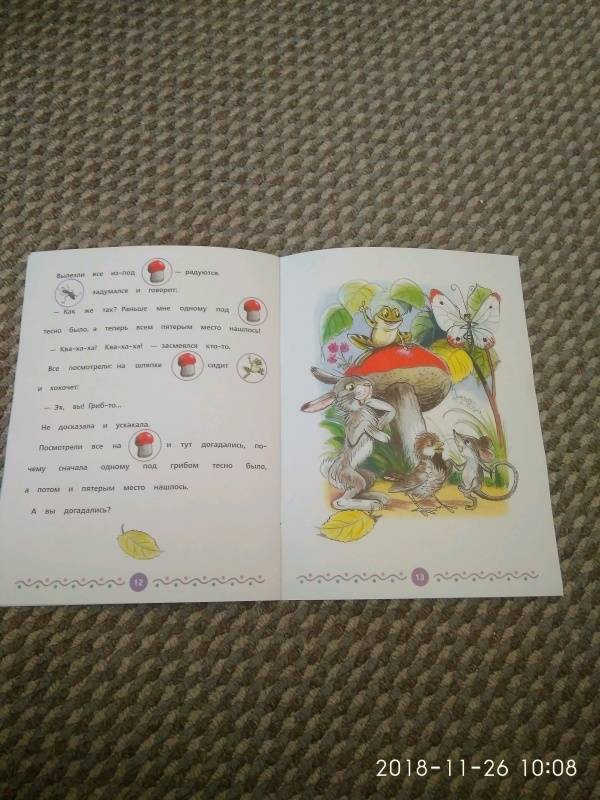 Вылезли все из-под — радуются,
задумался и говорит:
— Как же так? Раньше мне одному под
тесно было, а теперь всем пятерым место нашлось!
— Ква-ха-ха! Ква-ха-ха! — засмеялся кто-то.
Все посмотрели: на шляпке сидит
и хохочет:
— Эх, вы! Гриб-то...
Не досказала и ускакала.
Посмотрели все на и тут догадались, по-
чему сначала одному под грибом тесно было,
а потом и пятерым место нашлось.
А вы догадались?
12
13
2018-11-26 10:08